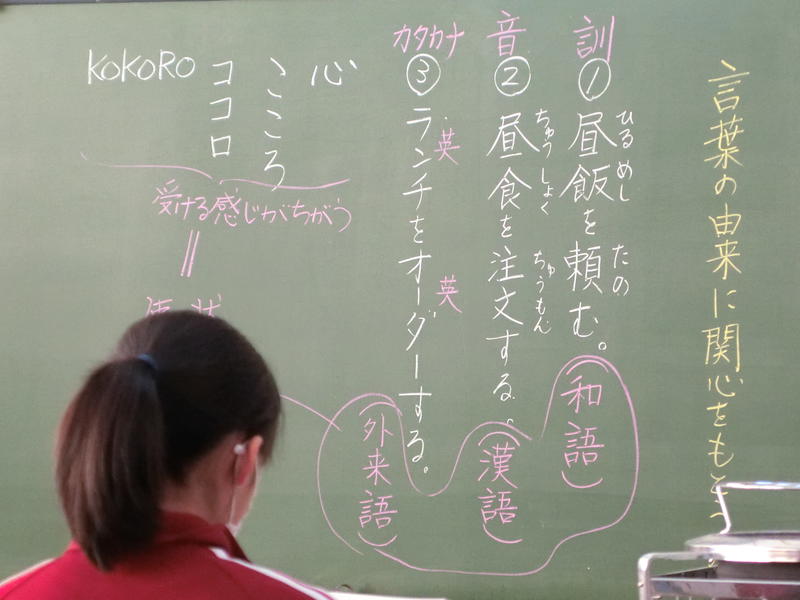 言葉の由来に関心をもとう
訓
①昼飯を頼む。
ひるめし
たの
(和語)
音
②昼食を注文する。
ちゅうしょく
ちゅうもん
(漢語)
カタカナ
③ランチをオーダーする。
英
英
(外来語)
心
こころ
ココロ
KOKORO
受ける感じがちがう